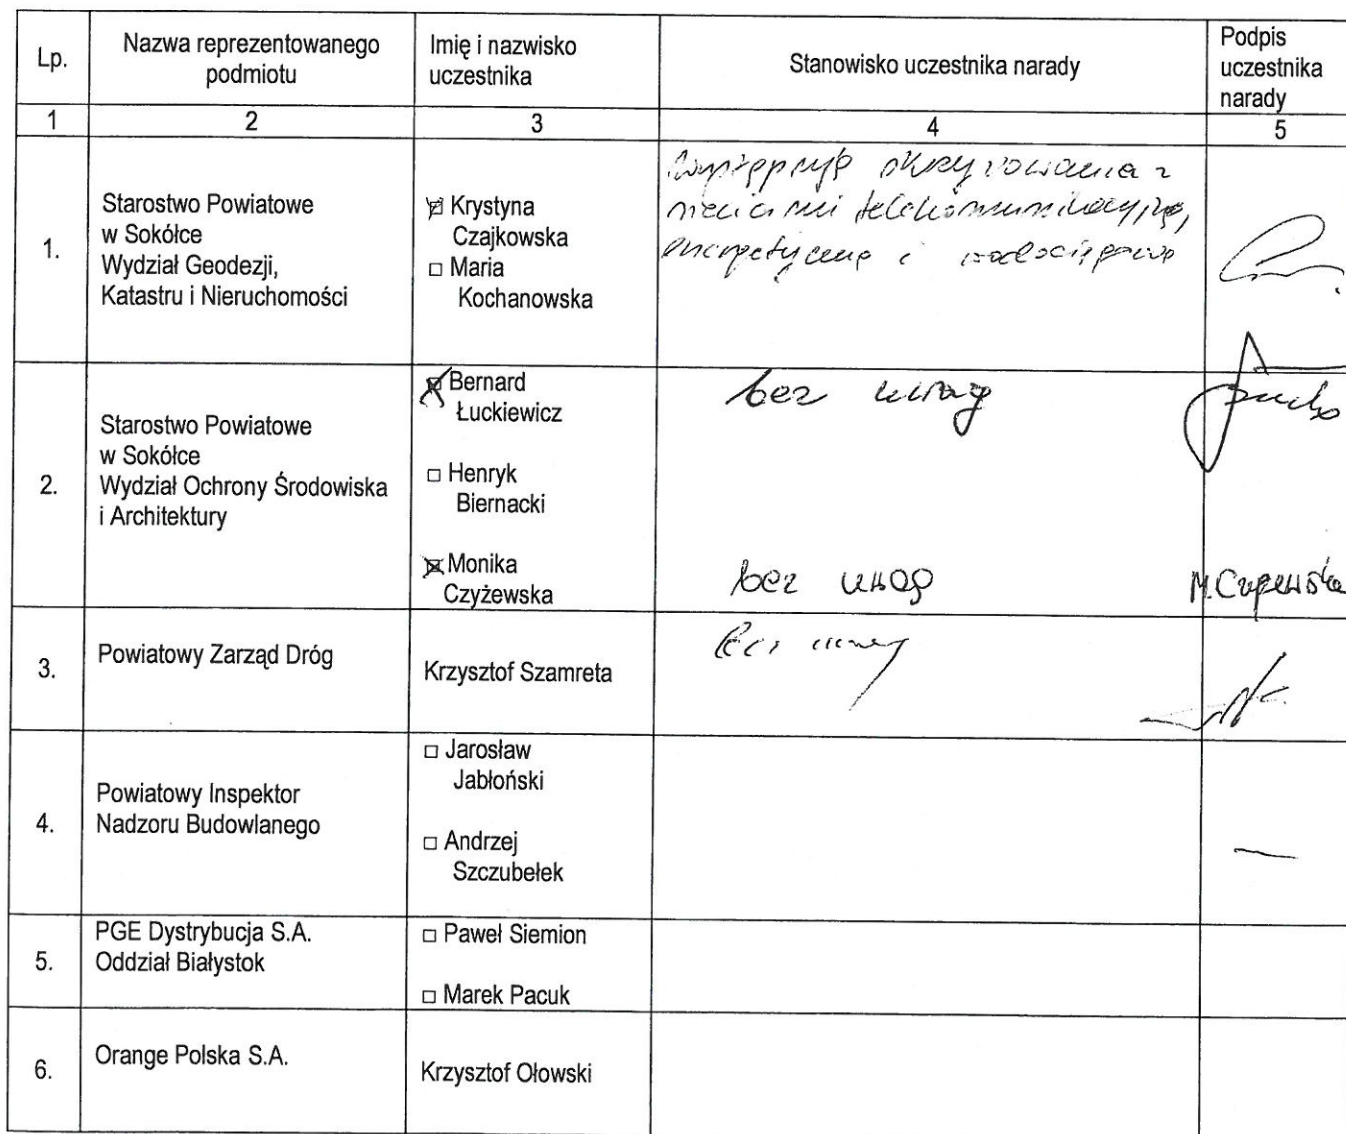 Lp.
Nazwa reprezentowanego
podmiotu
Imię i nazwisko
uczestnika
Stanowisko uczestnika narady
Podpis
uczestnika
narady
1
2
3
4
5
1.
Starostwo Powiatowe
w Sokółce
Wydział Geodezji,
Katastru i Nieruchomości
Krystyna
Czajkowska
Maria
Kochanowska
Występuje skrzyżowania z
sieciami telekomunikacyjną,
energetyczną i wodociągową
2.
Starostwo Powiatowe
w Sokółce
Wydział Ochrony Środowiska
i Architektury
Bernard
Łuckiewicz
bez uwag
Henryk
Biernacki
Monika
Czyżewska
bez uwag
M.Czyżewska
3.
Powiatowy Zarząd Dróg
Krzysztof Szamreta
Bez uwag
4.
Powiatowy Inspektor
Nadzoru Budowlanego
Jarosław
Jabłoński
Andrzej
Szczubełek
5.
PGE Dystrybucja S.A.
Oddział Białystok
Paweł Siemion
Marek Pacuk
6.
Orange Polska S.A.
Krzysztof Ołowski